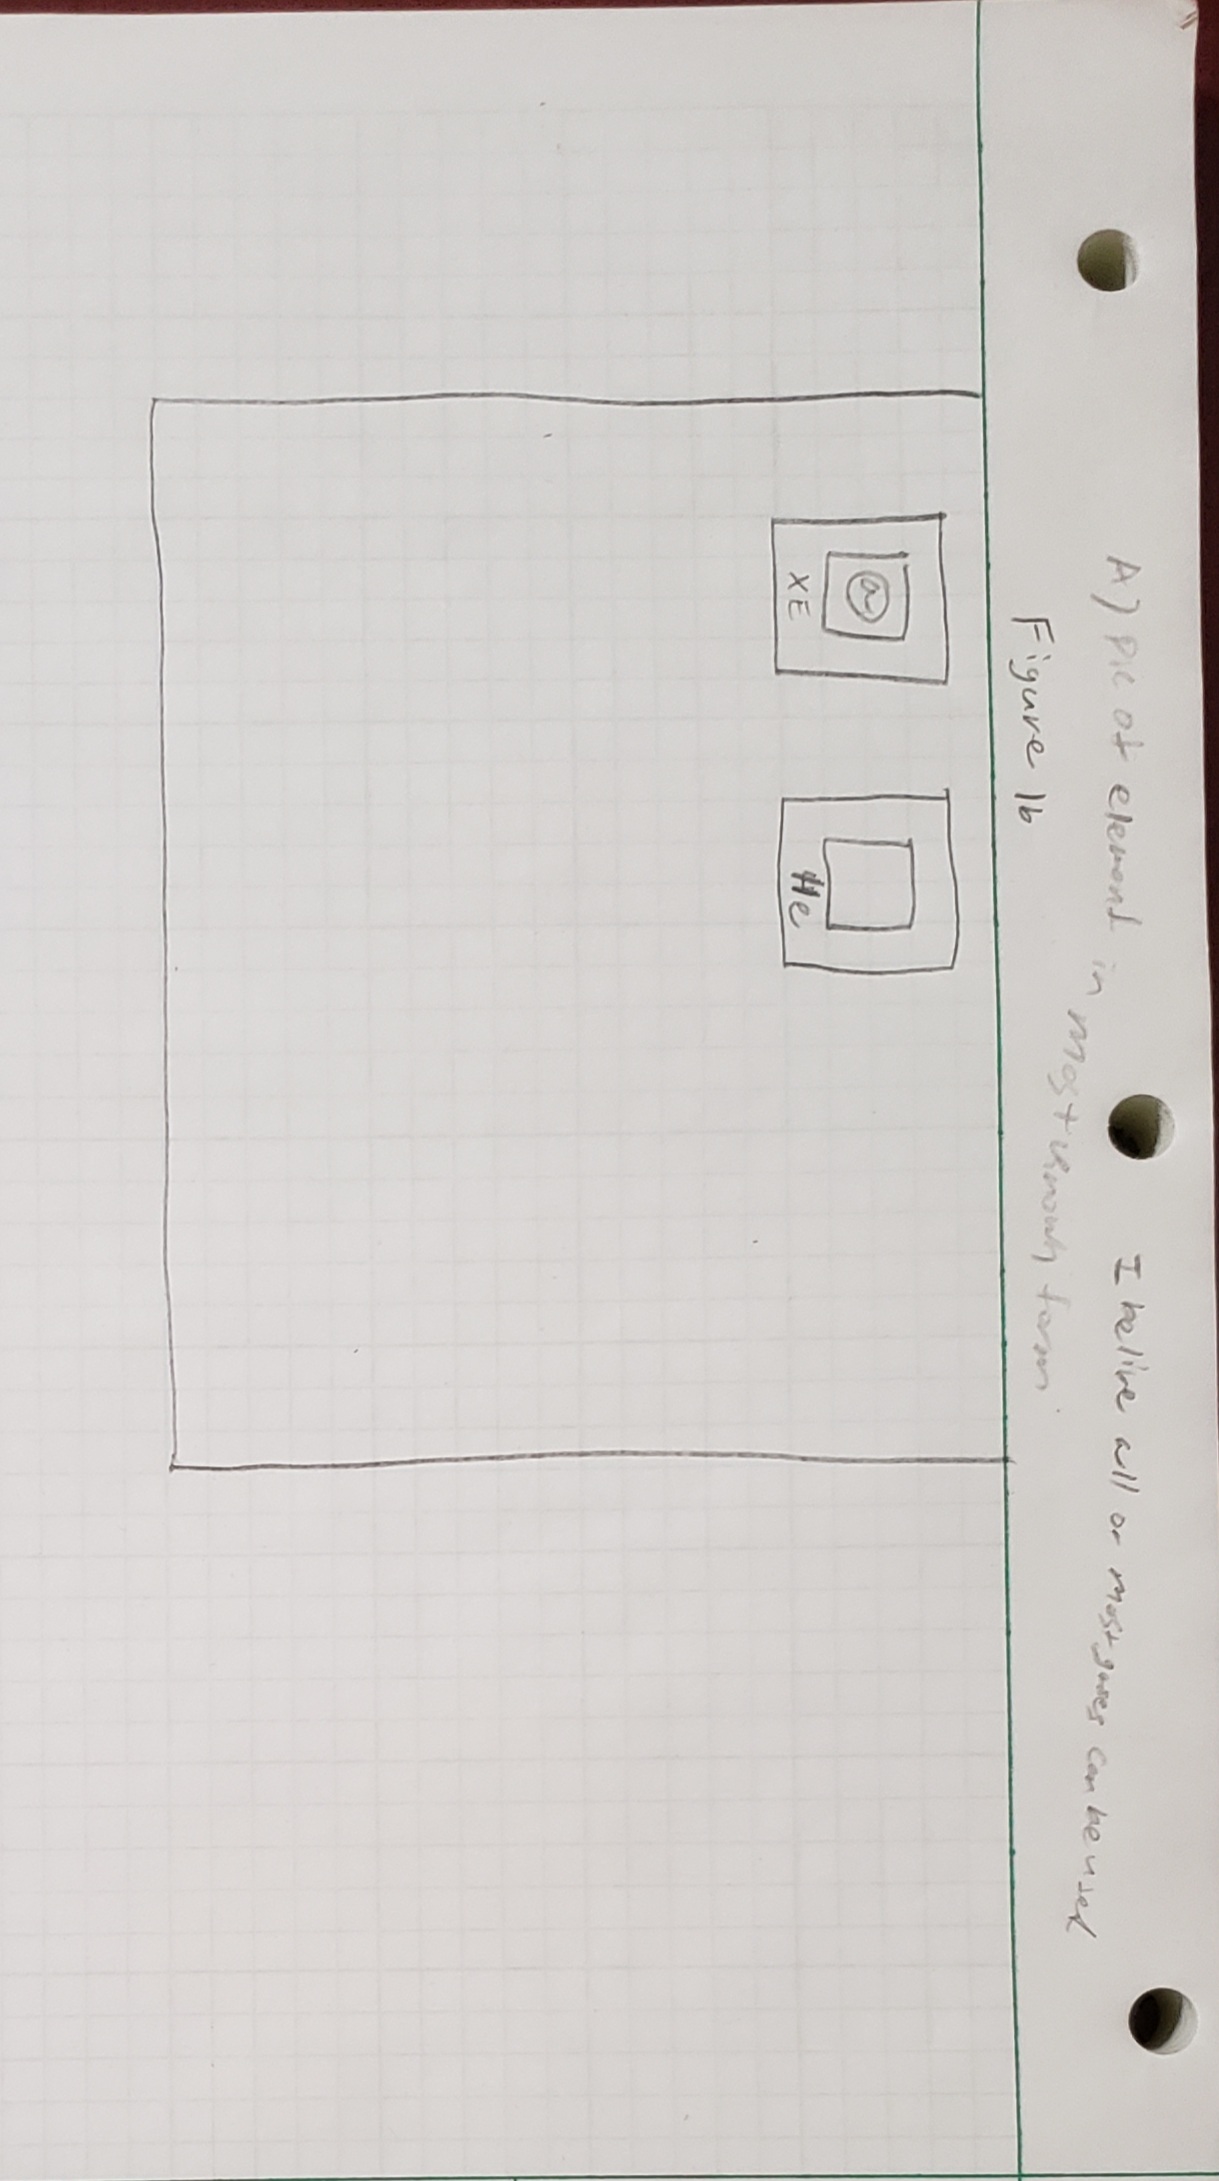 A) Pic of element in most known form
I belive all or most gases can be used
Figure 1b
a
XE
He